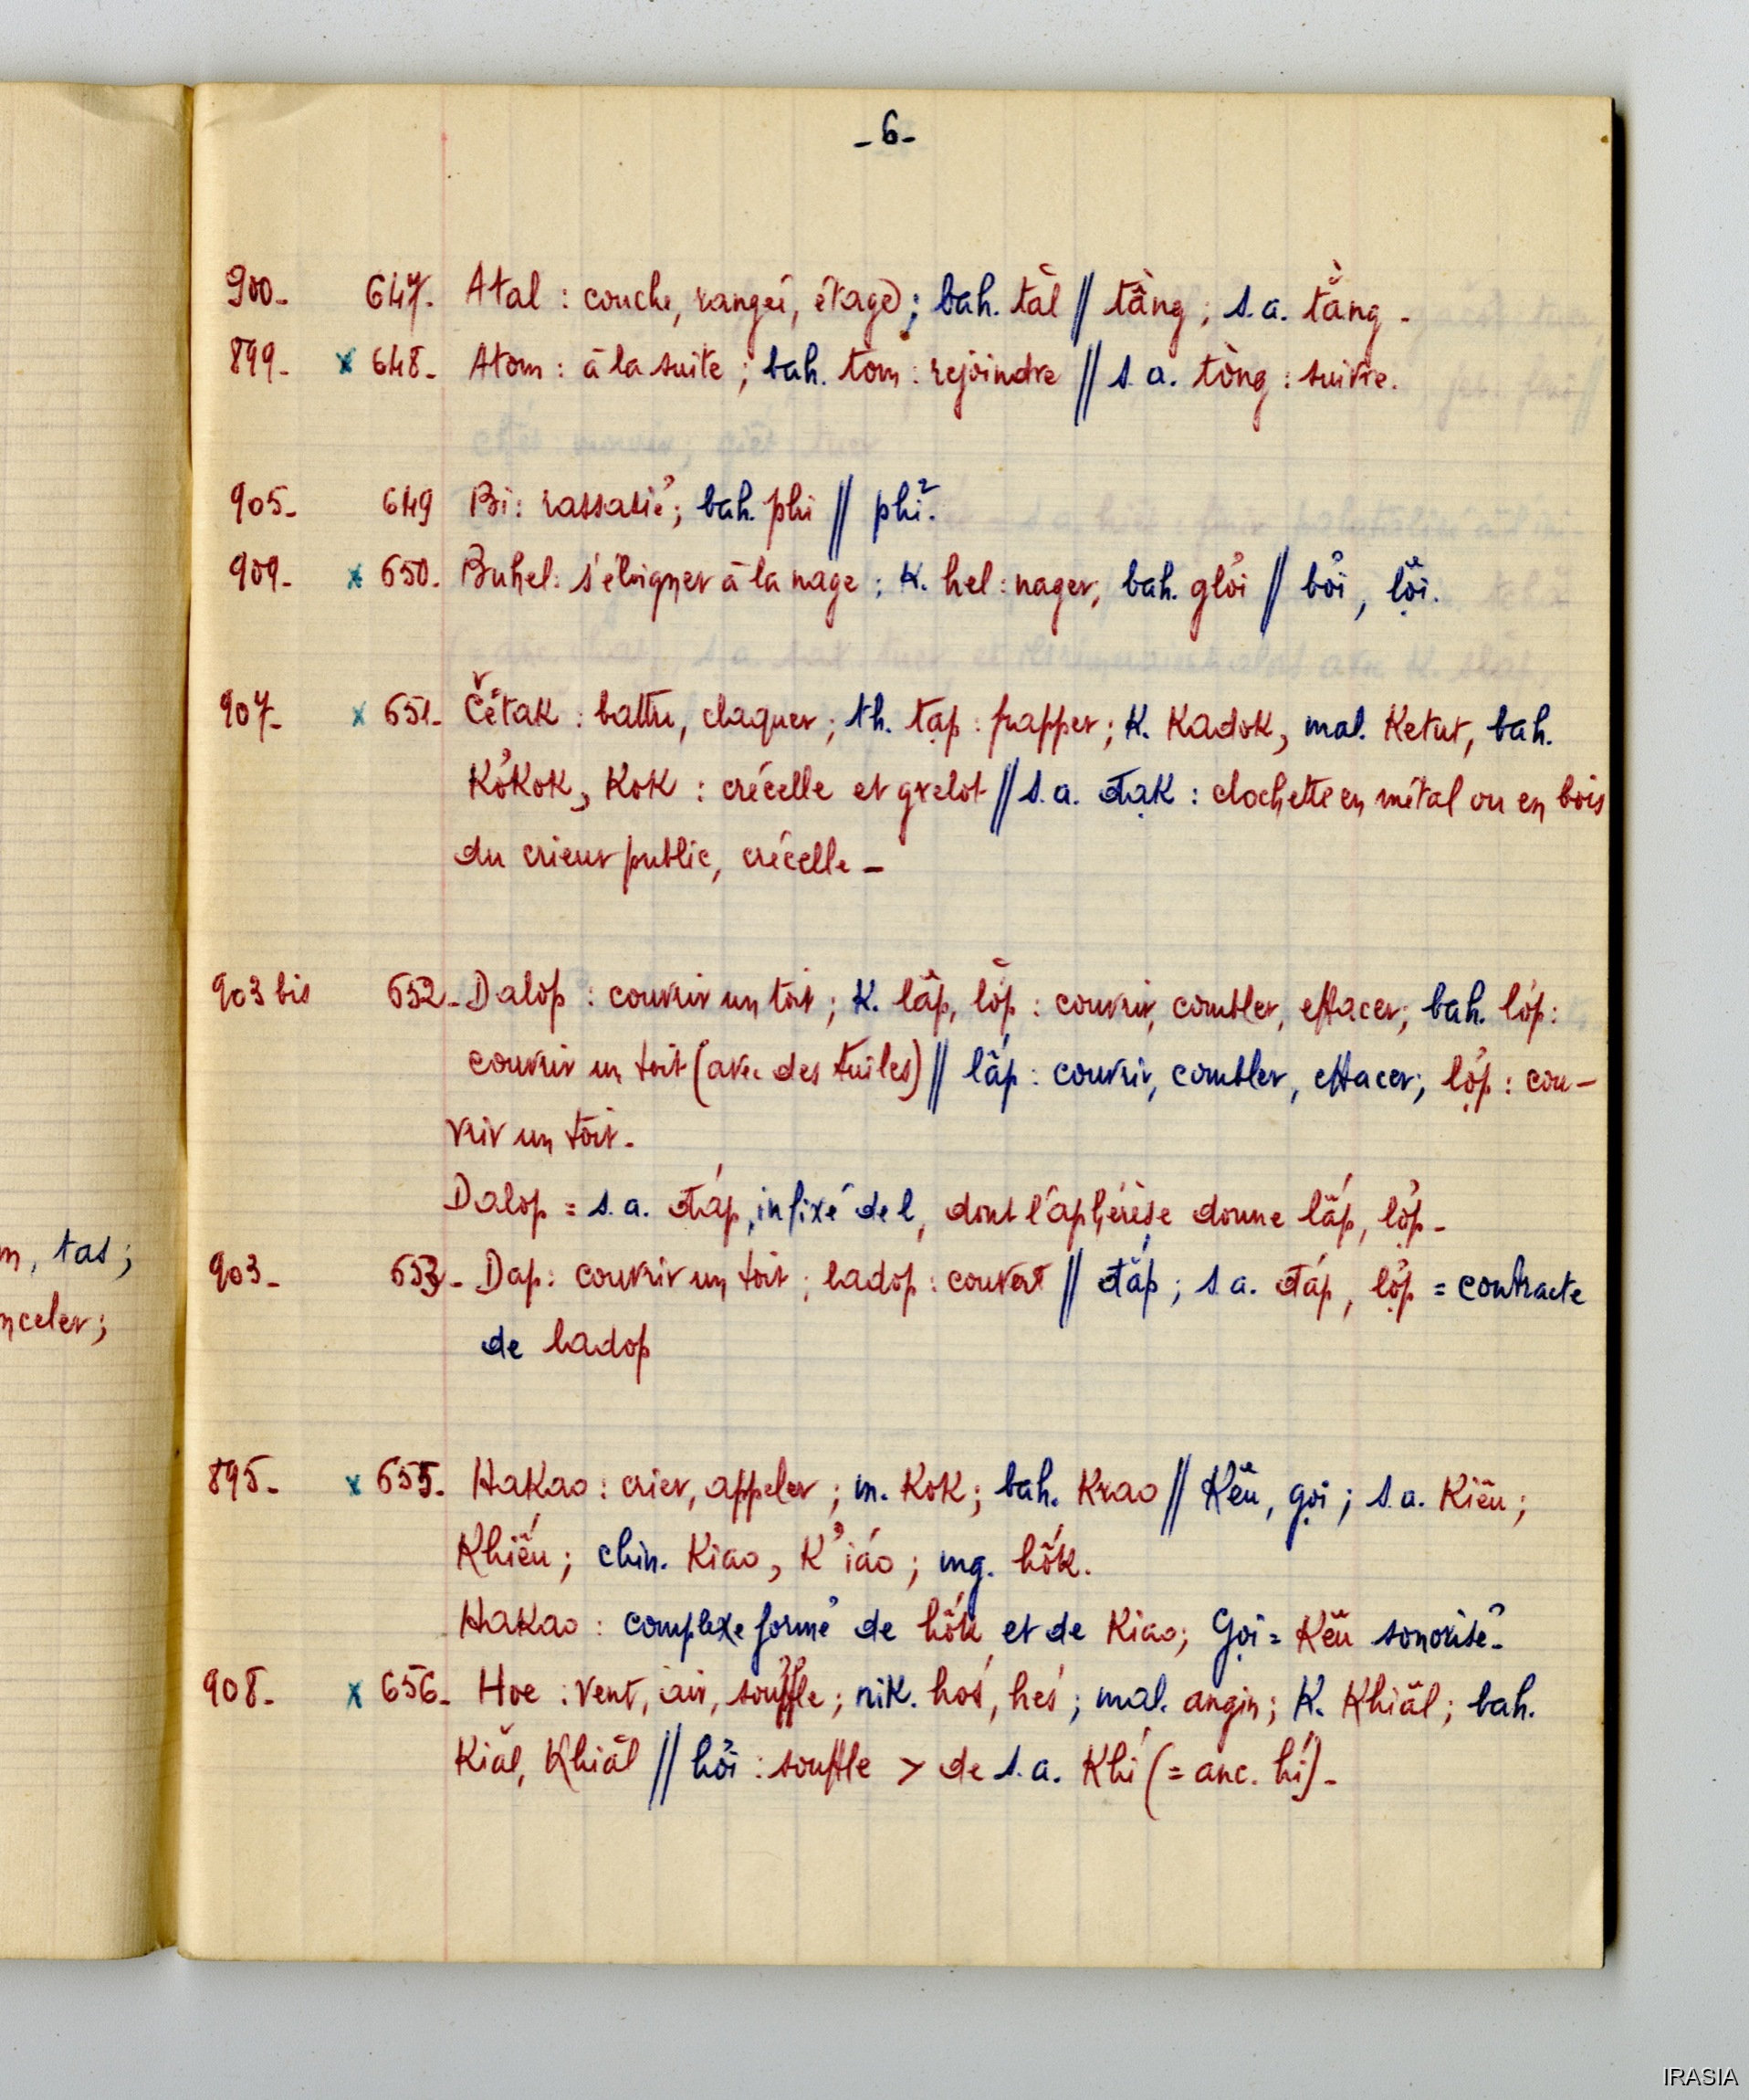 - 6 -
900- 647. Atal : couche, rangée, étage ; bah. tăl // tầng ; s.a. tằng -
899- x 648- Atom : à la suite ; bah. tom : rejoindre // s.a. tòng : suivre.
905- 649 Bi : rassasié ; bah. phi // phỉ.
909- x 650. Buhel : s'éloigner à la nage ; K. hel : nager, bah. glơi // bơi, lội.
907- x 651- Čětak : battu, claquer ; th. tạp : frapper ; K. Kadok, mal. Ketut, bah.
Kơkok, Kok : crécelle et grelot // s.a. đạk : clochette en métal ou en bois
du crieur public, crécelle -
903 bis 652- Dalop : couvrir un toit ; K. lấp, lơp : couvrir, combler, effacer ; bah. lơp :
couvrir un toit (avec des tuiles) // lấp : couvrir, combler, effacer ; lợp : cou-
vrir un toit -
Dalop = s.a. đáp, infixé de l, dont l'aphérèse donne lấp, lợp -
903- 653- Dap : couvrir un toit ; ladop : couvert // đắp ; s.a. đáp, lợp = contracte
de ladop
895- x 655. Hakao : crier, appeler ; m. Kok ; bah. Krao // Kêu, gọi ; s.a. Kiêu ;
Khiếu ; chin. Kiao, K'iáo ; mg. hôk.
Hakao : complexe formé de hôk et de Kiao ; Gọi = Kêu sonorisé -
908- x 656- Hoe : vent, air, souffle ; nik. hos, hes ; mal. angin ; K. Khiăl ; bah.
Kiăl, Khiăl // hơi : souffle > de s.a. Khí (= anc. hí) -
m, tas ;
nceler ;
IRASIA